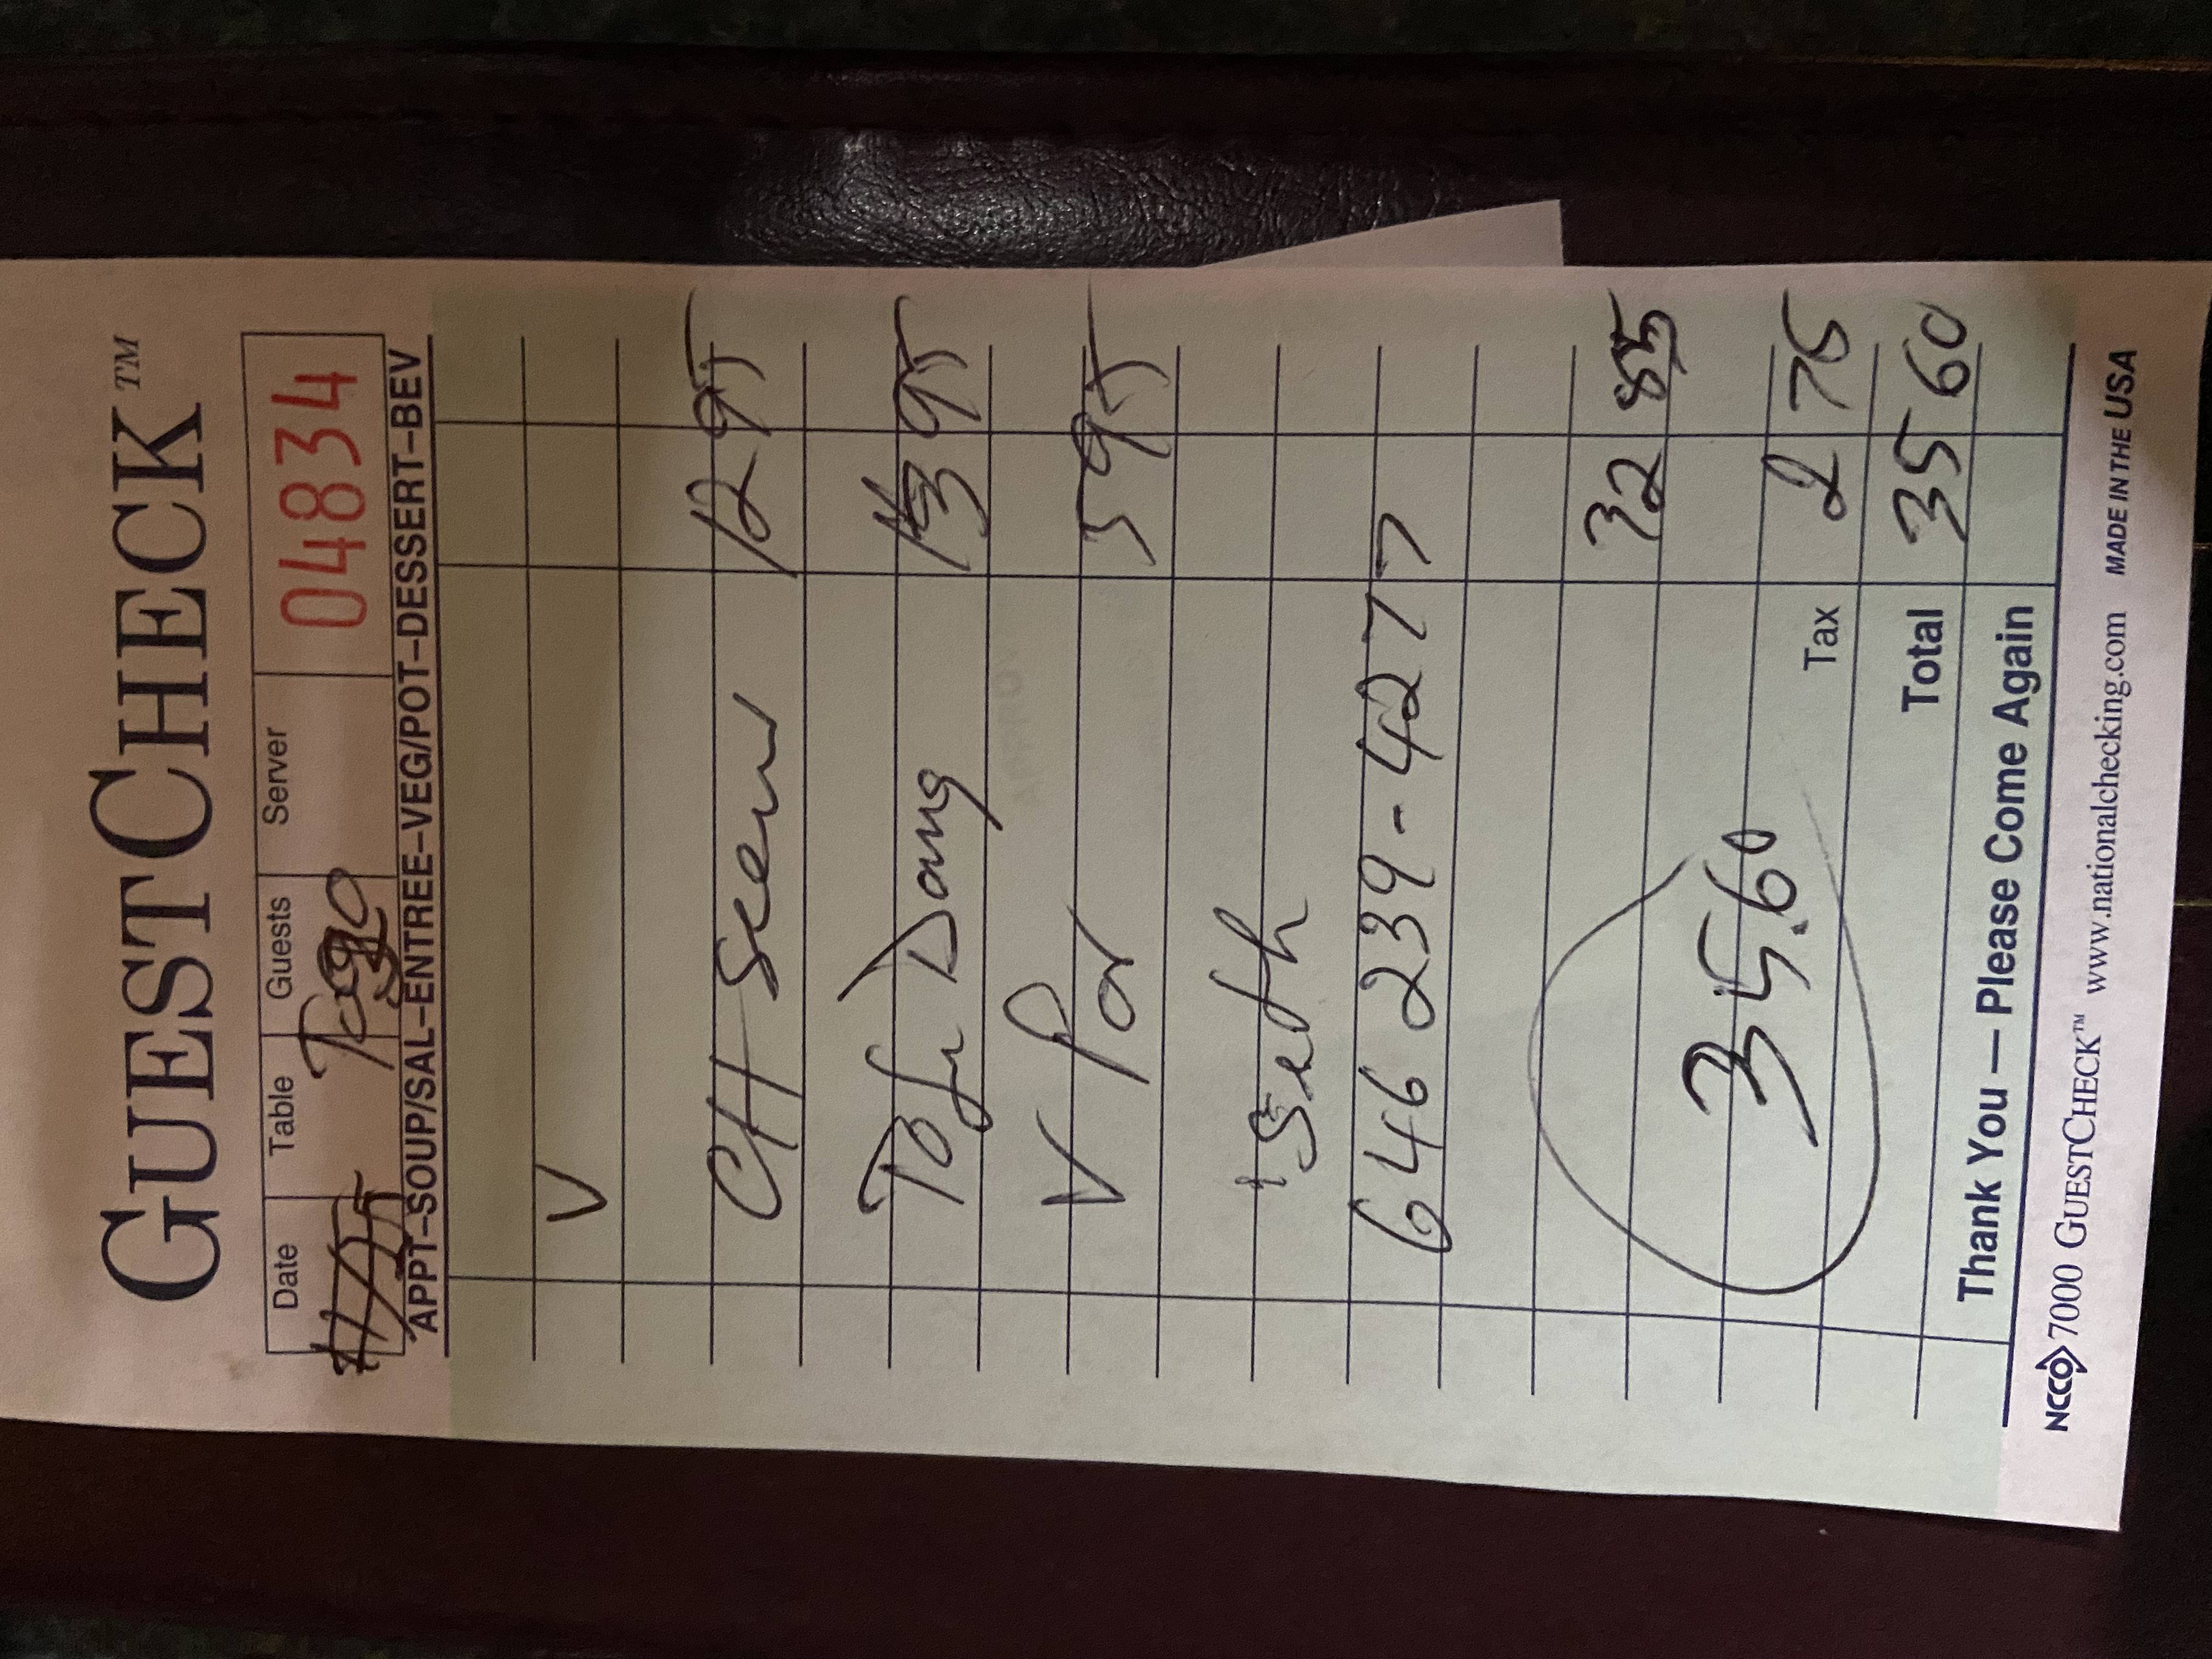 GUESTCHECK™
Date Table Guests Server 04834
11/25 Togo
APPT–SOUP/SAL–ENTREE–VEG/POT–DESSERT–BEV
V
CH 12 95
Tofu Dang 13 95
V Por 5 95
Seth
646 239-4277
32 85
35.60
Tax 2 75
Total 35 60
Thank You — Please Come Again
NCCO 7000 GUESTCHECK™ www.nationalchecking.com MADE IN THE USA